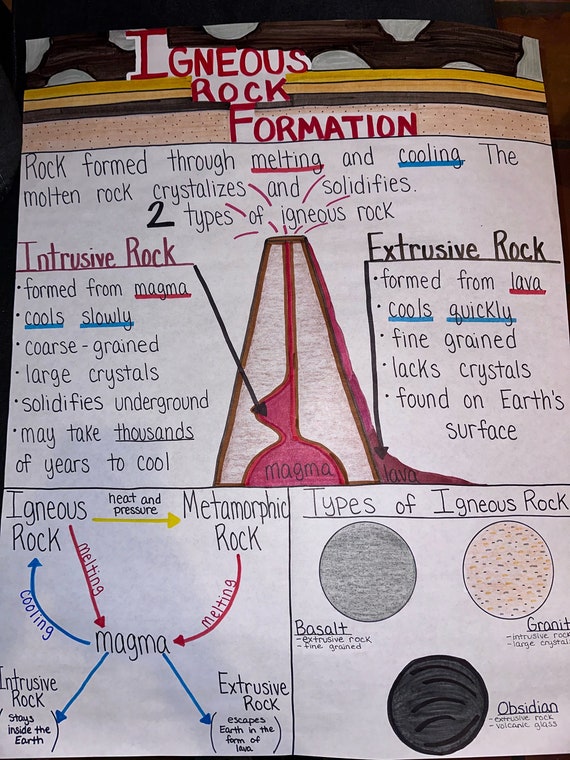 IGNEOUS
ROCK
FORMATION
Rock formed through melting and cooling The
molten rock crystalizes and solidifies.
2 types of igneous rock
Intrusive Rock
·formed from magma
·cools slowly
·coarse-grained
·large crystals
·solidifies underground
·may take thousands
of years to cool
Extrusive Rock
·formed from lava
·cools quickly
·fine grained
·lacks crystals
·found on Earth's
surface
magma
lava
Igneous
Rock
heat and
pressure
Metamorphic
Rock
melting
melting
cooling
magma
Intrusive
Rock
(stays
inside the
Earth)
Extrusive
Rock
(escapes
Earth in the
form of
lava)
Types of Igneous Rock
Basalt
-extrusive rock
-fine grained
Granit
-intrusive rock
-large crystal
Obsidian
-extrusive rock
-volcanic glass